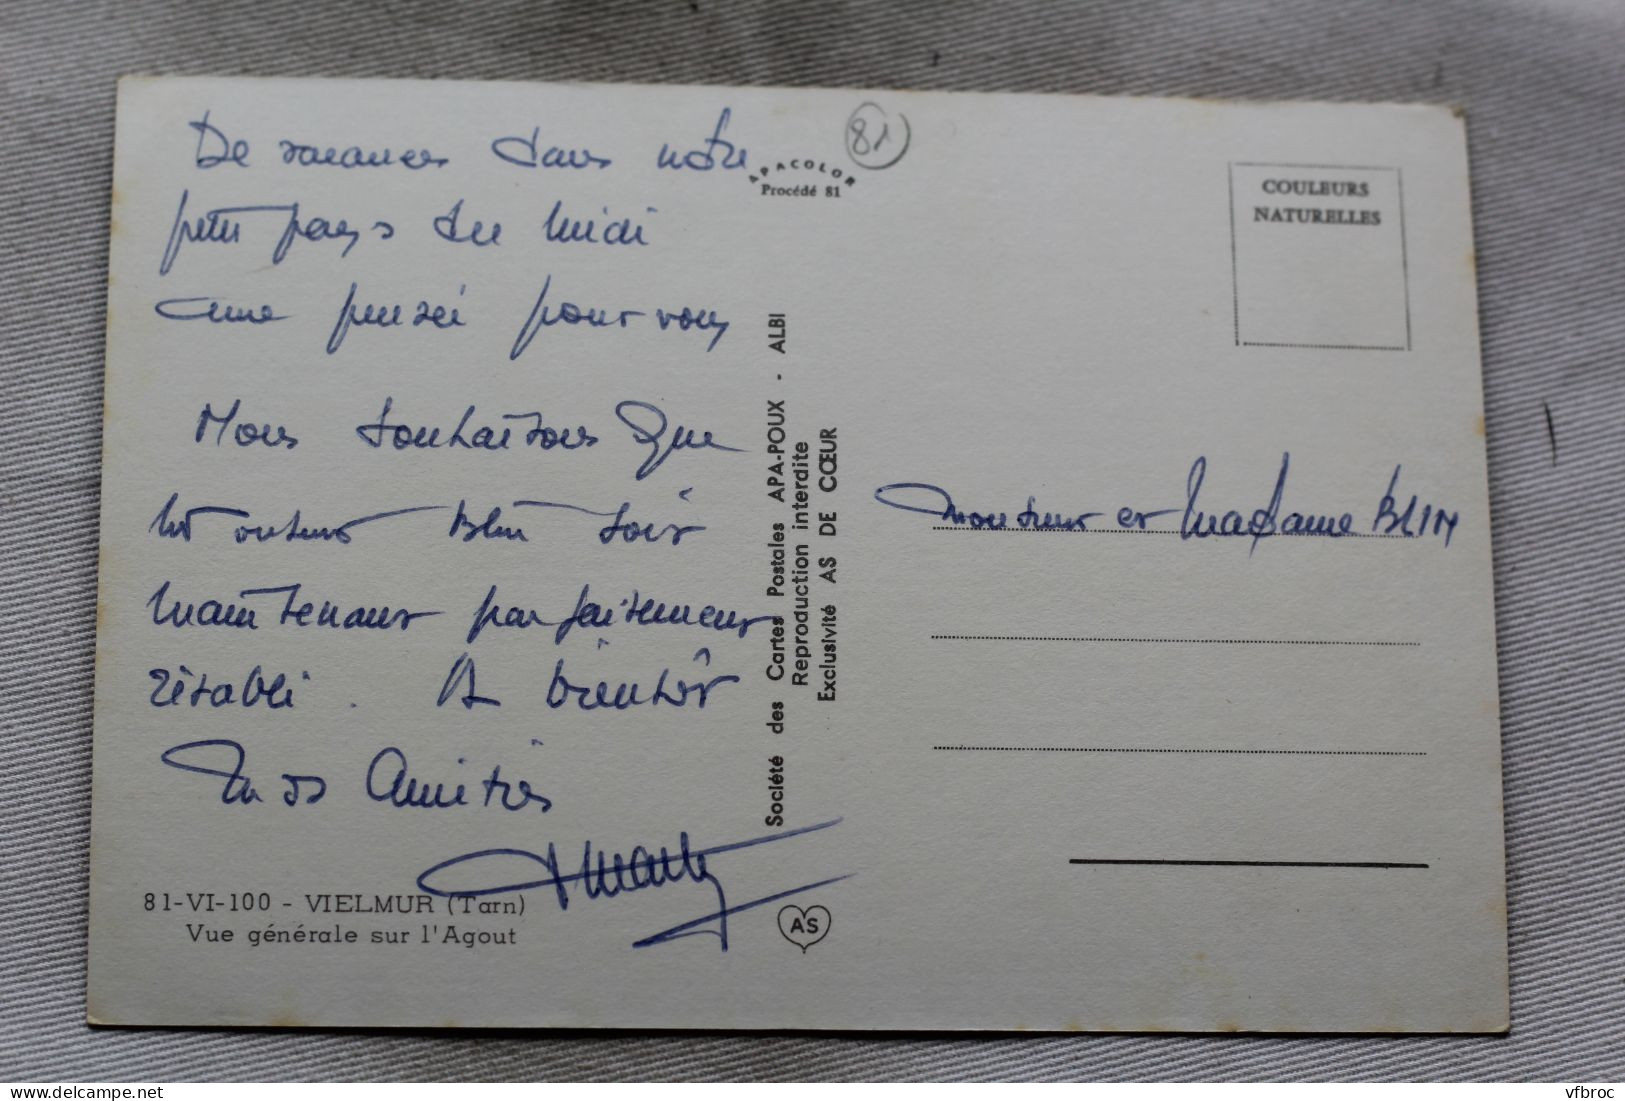 De vacances dans notre
petit pays du Midi
une pensée pour vous
Nous souhaitons que
Monsieur Blin soit
maintenant parfaitement
rétabli. A bientôt
nos Amitiés
81-VI-100 - VIELMUR (Tarn)
Vue générale sur l'Agout
81
APACOLOR
Procédé 81
Société des Cartes Postales APA-POUX - ALBI
Reproduction interdite
Exclusivité AS DE CŒUR
AS
COULEURS
NATURELLES
Monsieur et Madame BLIN
vfbroc
delcampe.net